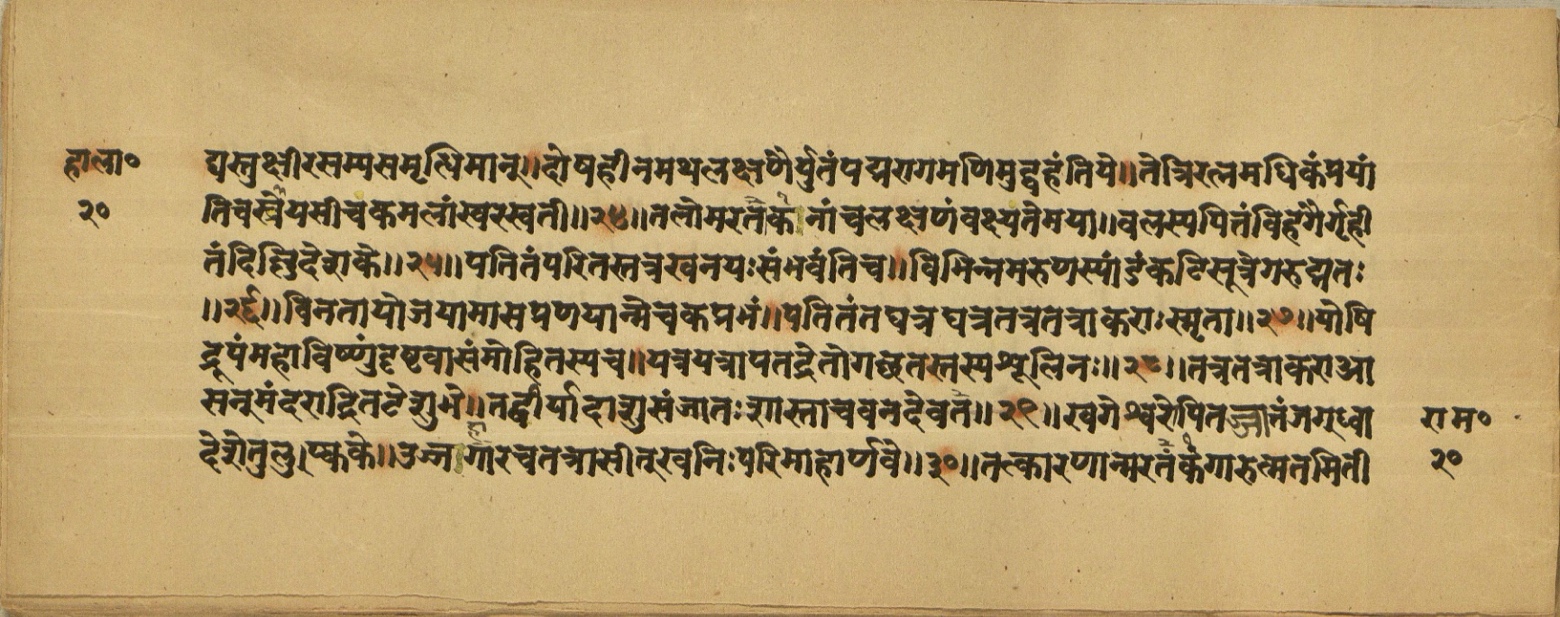 हाला० द्यस्तुक्ष्मीरसम्यसमृत्धिमान्॥दोषहीनमथलक्ष्णैर्युतंपद्मरागमणिमुद्वहंतिये॥तेन्निरत्नमधिकंप्रयां
२० तिवस्त्रैयसीचकमलांस्वरस्वती॥२४॥तलोमरतकेनांच्चलक्ष्णंवक्ष्यतेमया॥वलस्यपितंविहंगैर्गृही
तंदिल्लिदेशके॥२५॥पतितंपरितस्तत्रखनयःसंभवंतिच॥विभिन्नमरुणस्पांडंकटिसूत्रेगरुद्मतः
॥२६॥विनतायोजयामासप्रणयान्मेचकप्रभं॥पतितंतघत्रघत्रतत्रतत्राकराःस्मृता॥२७॥योषि
द्रूपंमहाविष्णुंदृष्टवासंमोहितस्यच॥यत्रयत्रापतद्रेतोगछतस्तस्यशूलिनः॥२८॥तत्रतत्राकराआ
सनूमंदराद्रितटेशुभे॥तद्वीर्यादाशुसंजातःशास्ताचवनदेवत॥२९॥खगेश्वरोपितज्ञानंजगृध्वा राम०
देशेतुलुष्कके॥उज्जगारचतत्रासीत्खनिःपरिमाहार्णवे॥३०॥तत्कारणान्मरतकंगारुत्मतमिती २०